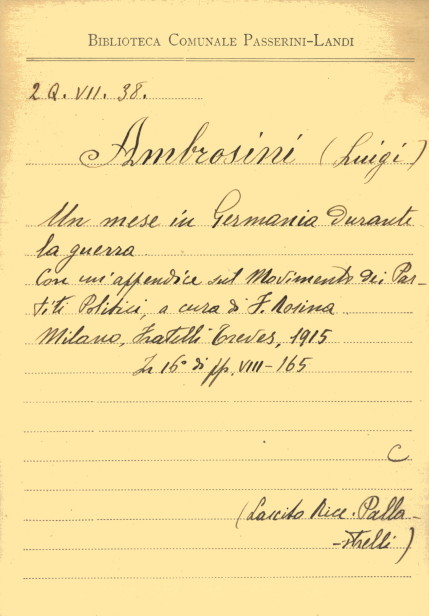 BIBLIOTECA COMUNALE PASSERINI-LANDI
2 Q. VII. 38.
Ambrosini (Luigi)
Un mese in Germania durante
la guerra
Con un'appendice sul Movimento dei Par-
titi Politici, a cura di F. Rosina
Milano, Fratelli Treves, 1915
In 16° di pp. VIII-165
C
(Lascito Ric. Palla-
-strelli)